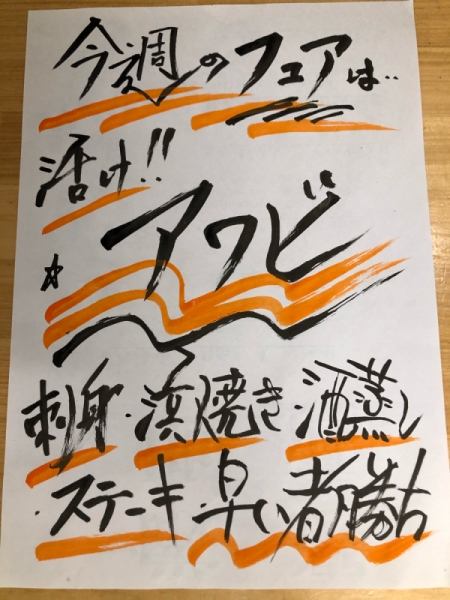 今週のフェアは‥
活け!!
☆アワビ
刺身・浜焼き 酒蒸し
・ステーキ 早い者勝ち